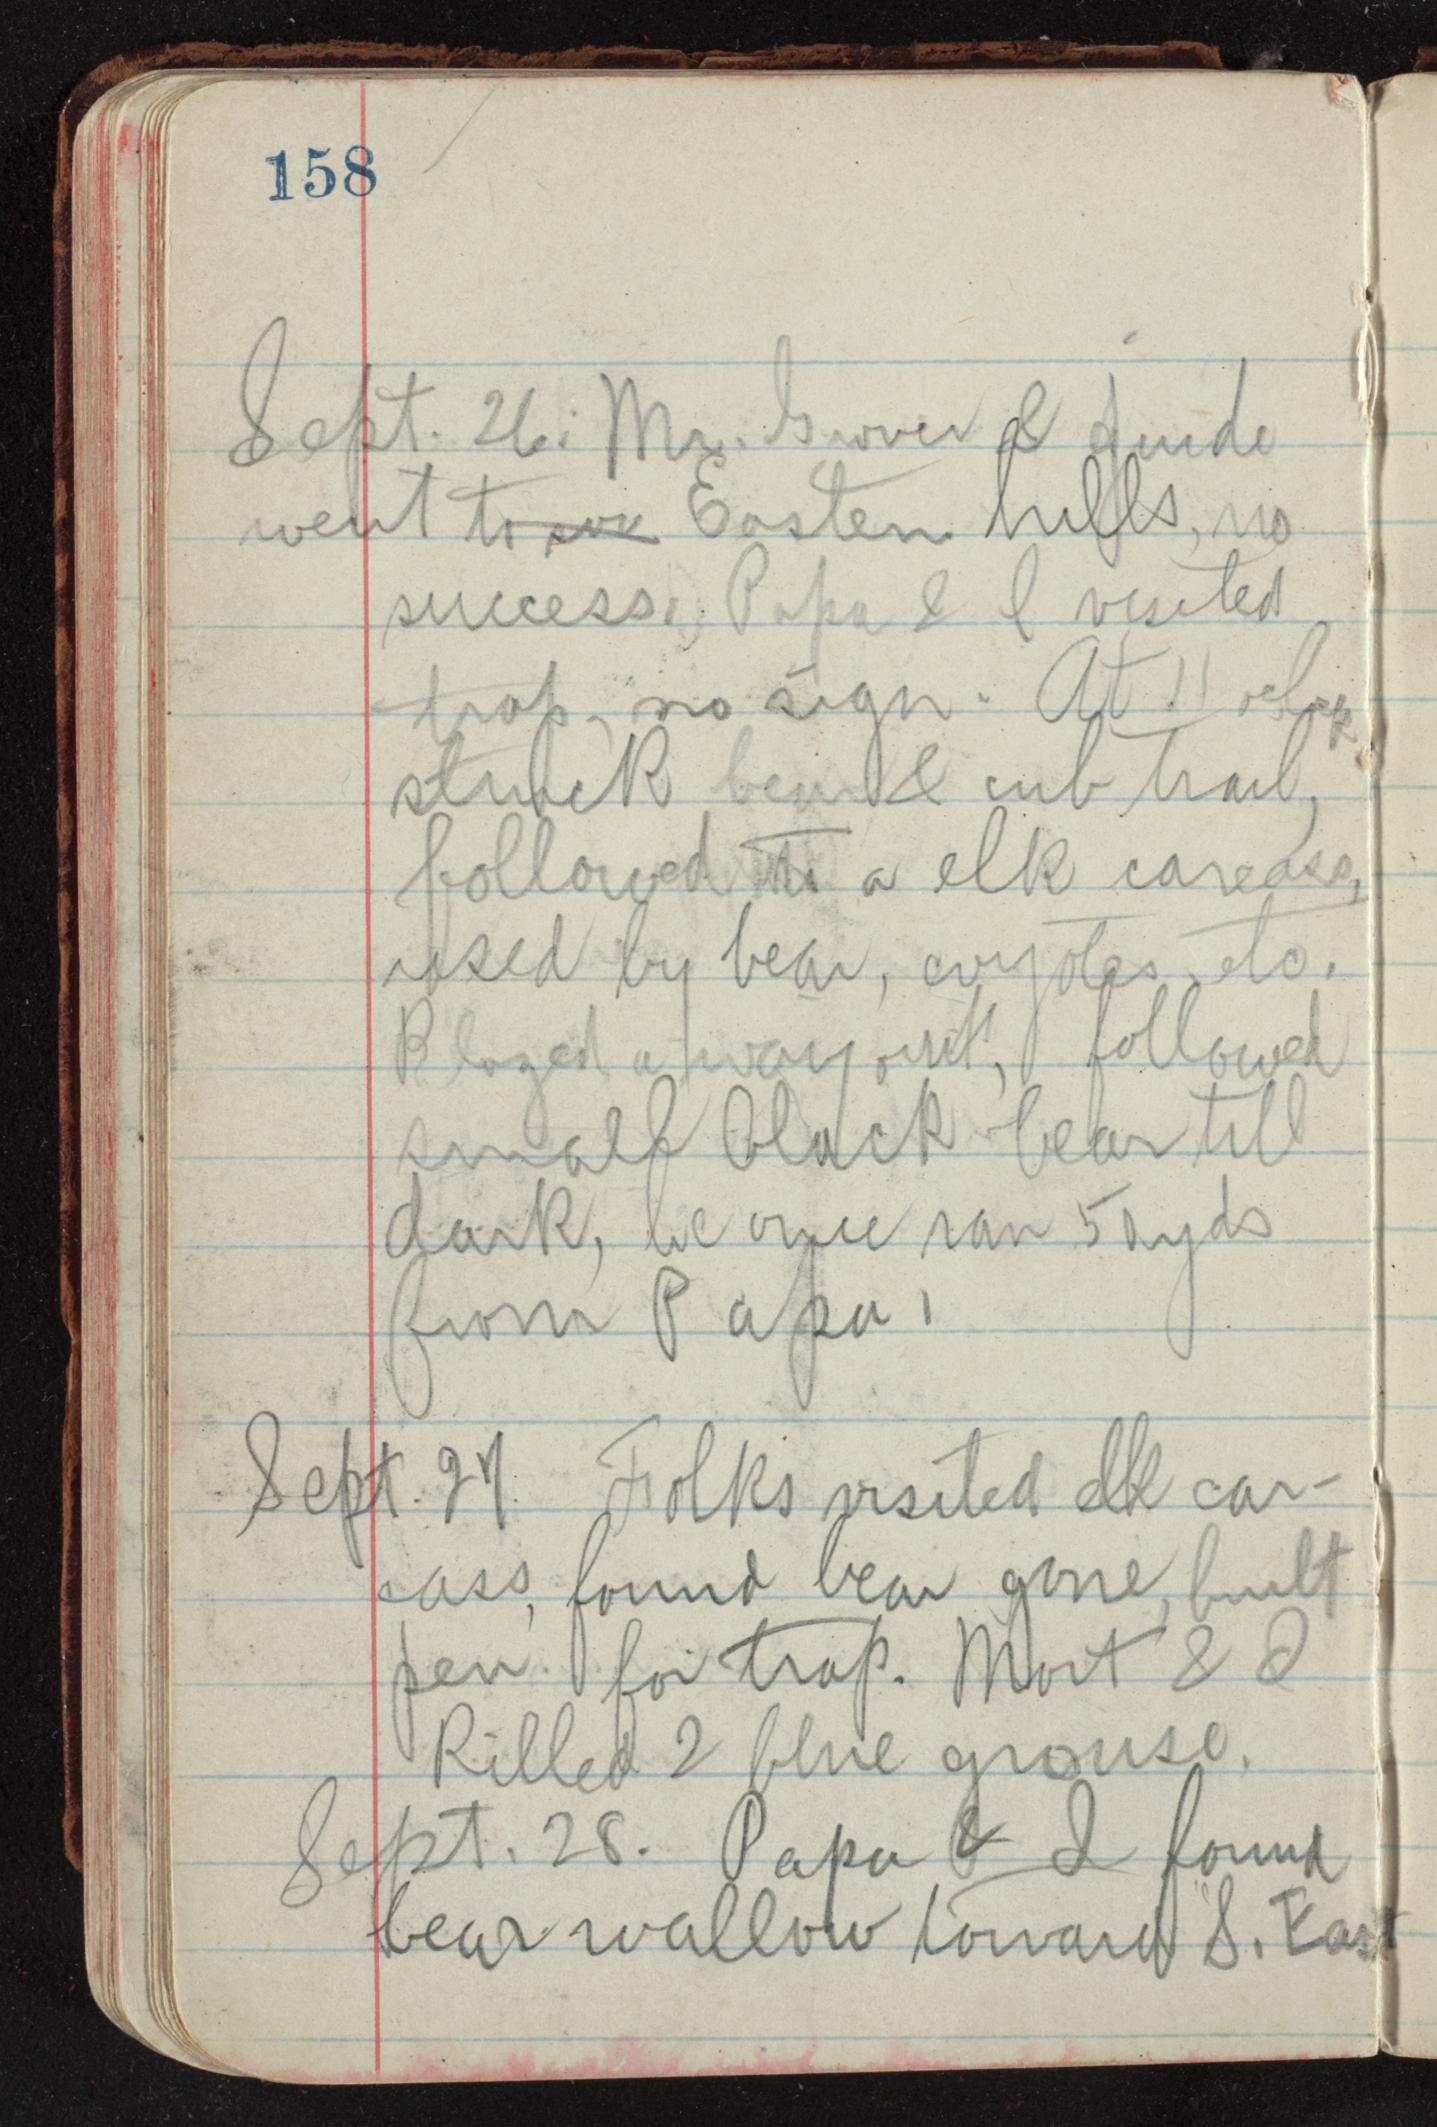 158
Sept. 26: Mr. Grover & guide
went to Eastern hills, no
success. Papa & I visited
trap, no sign. At 11 oclock
struck bear & cub trail,
followed to a elk carcass,
used by bear, coyotes, etc.
Blazed a way out, followed
small black bear till
dark, he once ran 50 yds
from Papa.
Sept. 27. Folks visited elk car-
cass, found bear gone, built
pen for trap. Mort & I
killed 2 blue grouse.
Sept. 28. Papa & I found
bear wallow toward S. East